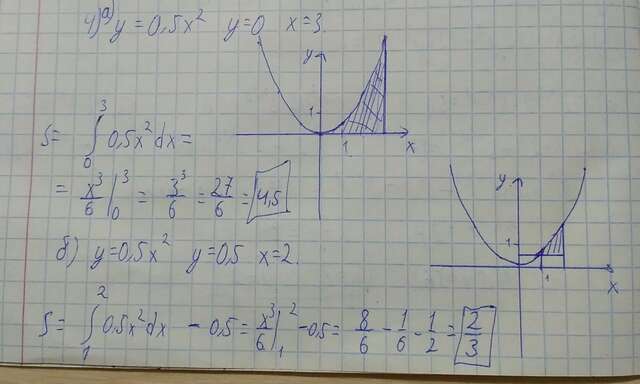 4) а) y = 0,5x² y=0 x=3.
y
1
1
x
S = ∫₀³ 0,5x² dx =
= x³/6 |₀³ = 3³/6 = 27/6 = 4,5
y
1
1
x
б) y=0,5x² y=0,5 x=2.
S = ∫₁² 0,5x² dx - 0,5 = x³/6 |₁² - 0,5 = 8/6 - 1/6 - 1/2 = 2/3